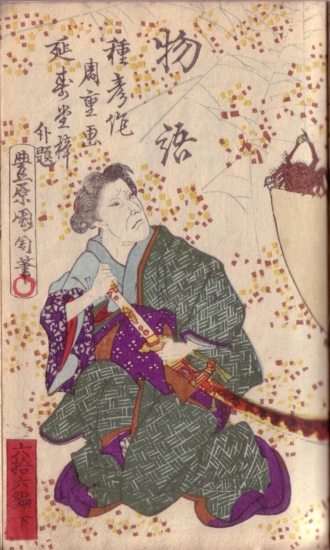 物語
種彦作
周重画
延寿堂梓
外題
豊原國周筆
六拾六編下